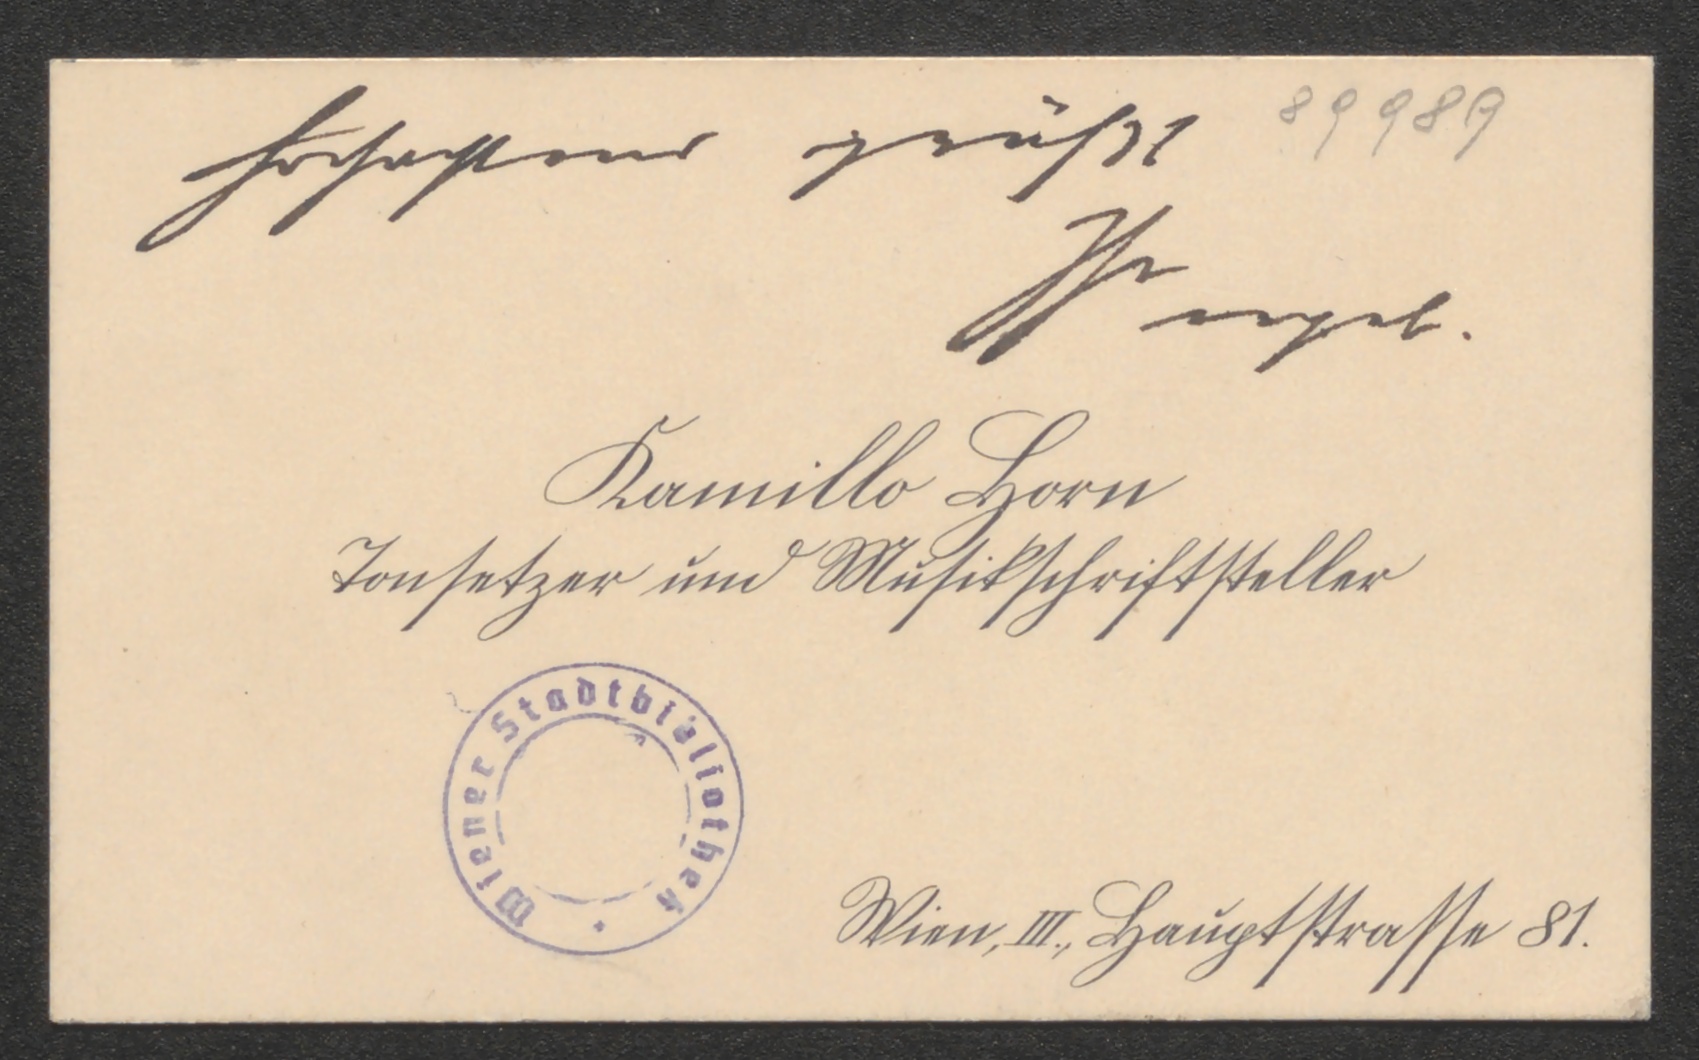 Hochachtend grüßt
89989
Ihr
ergeb.
Kamillo Horn
Tonsetzer und Musikschriftsteller
Wiener Stadtbibliothek
Wien, III., Hauptstrasse 81.